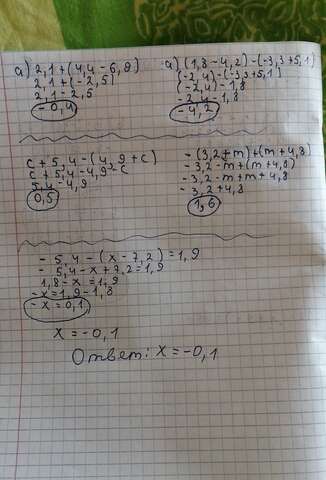 а) 2,1+(4,4-6,9)
2,1+(-2,5)
2,1-2,5
-0,4
а) (1,8-4,2)-(-3,3+5,1)
(-2,4)-(-3,3+5,1)
(-2,4)-1,8
-2,4-1,8
-4,2
с+5,4-(4,9+с)
с+5,4-4,9-с
5,4-4,9
0,5
-(3,2+m)+(m+4,8)
-3,2-m+(m+4,8)
-3,2-m+m+4,8
-3,2+4,8
1,6
-5,4-(x-7,2)=1,9
-5,4-x+7,2=1,9
1,8-x=1,9
-x=1,9-1,8
-x=0,1
x=-0,1
Ответ: x=-0,1